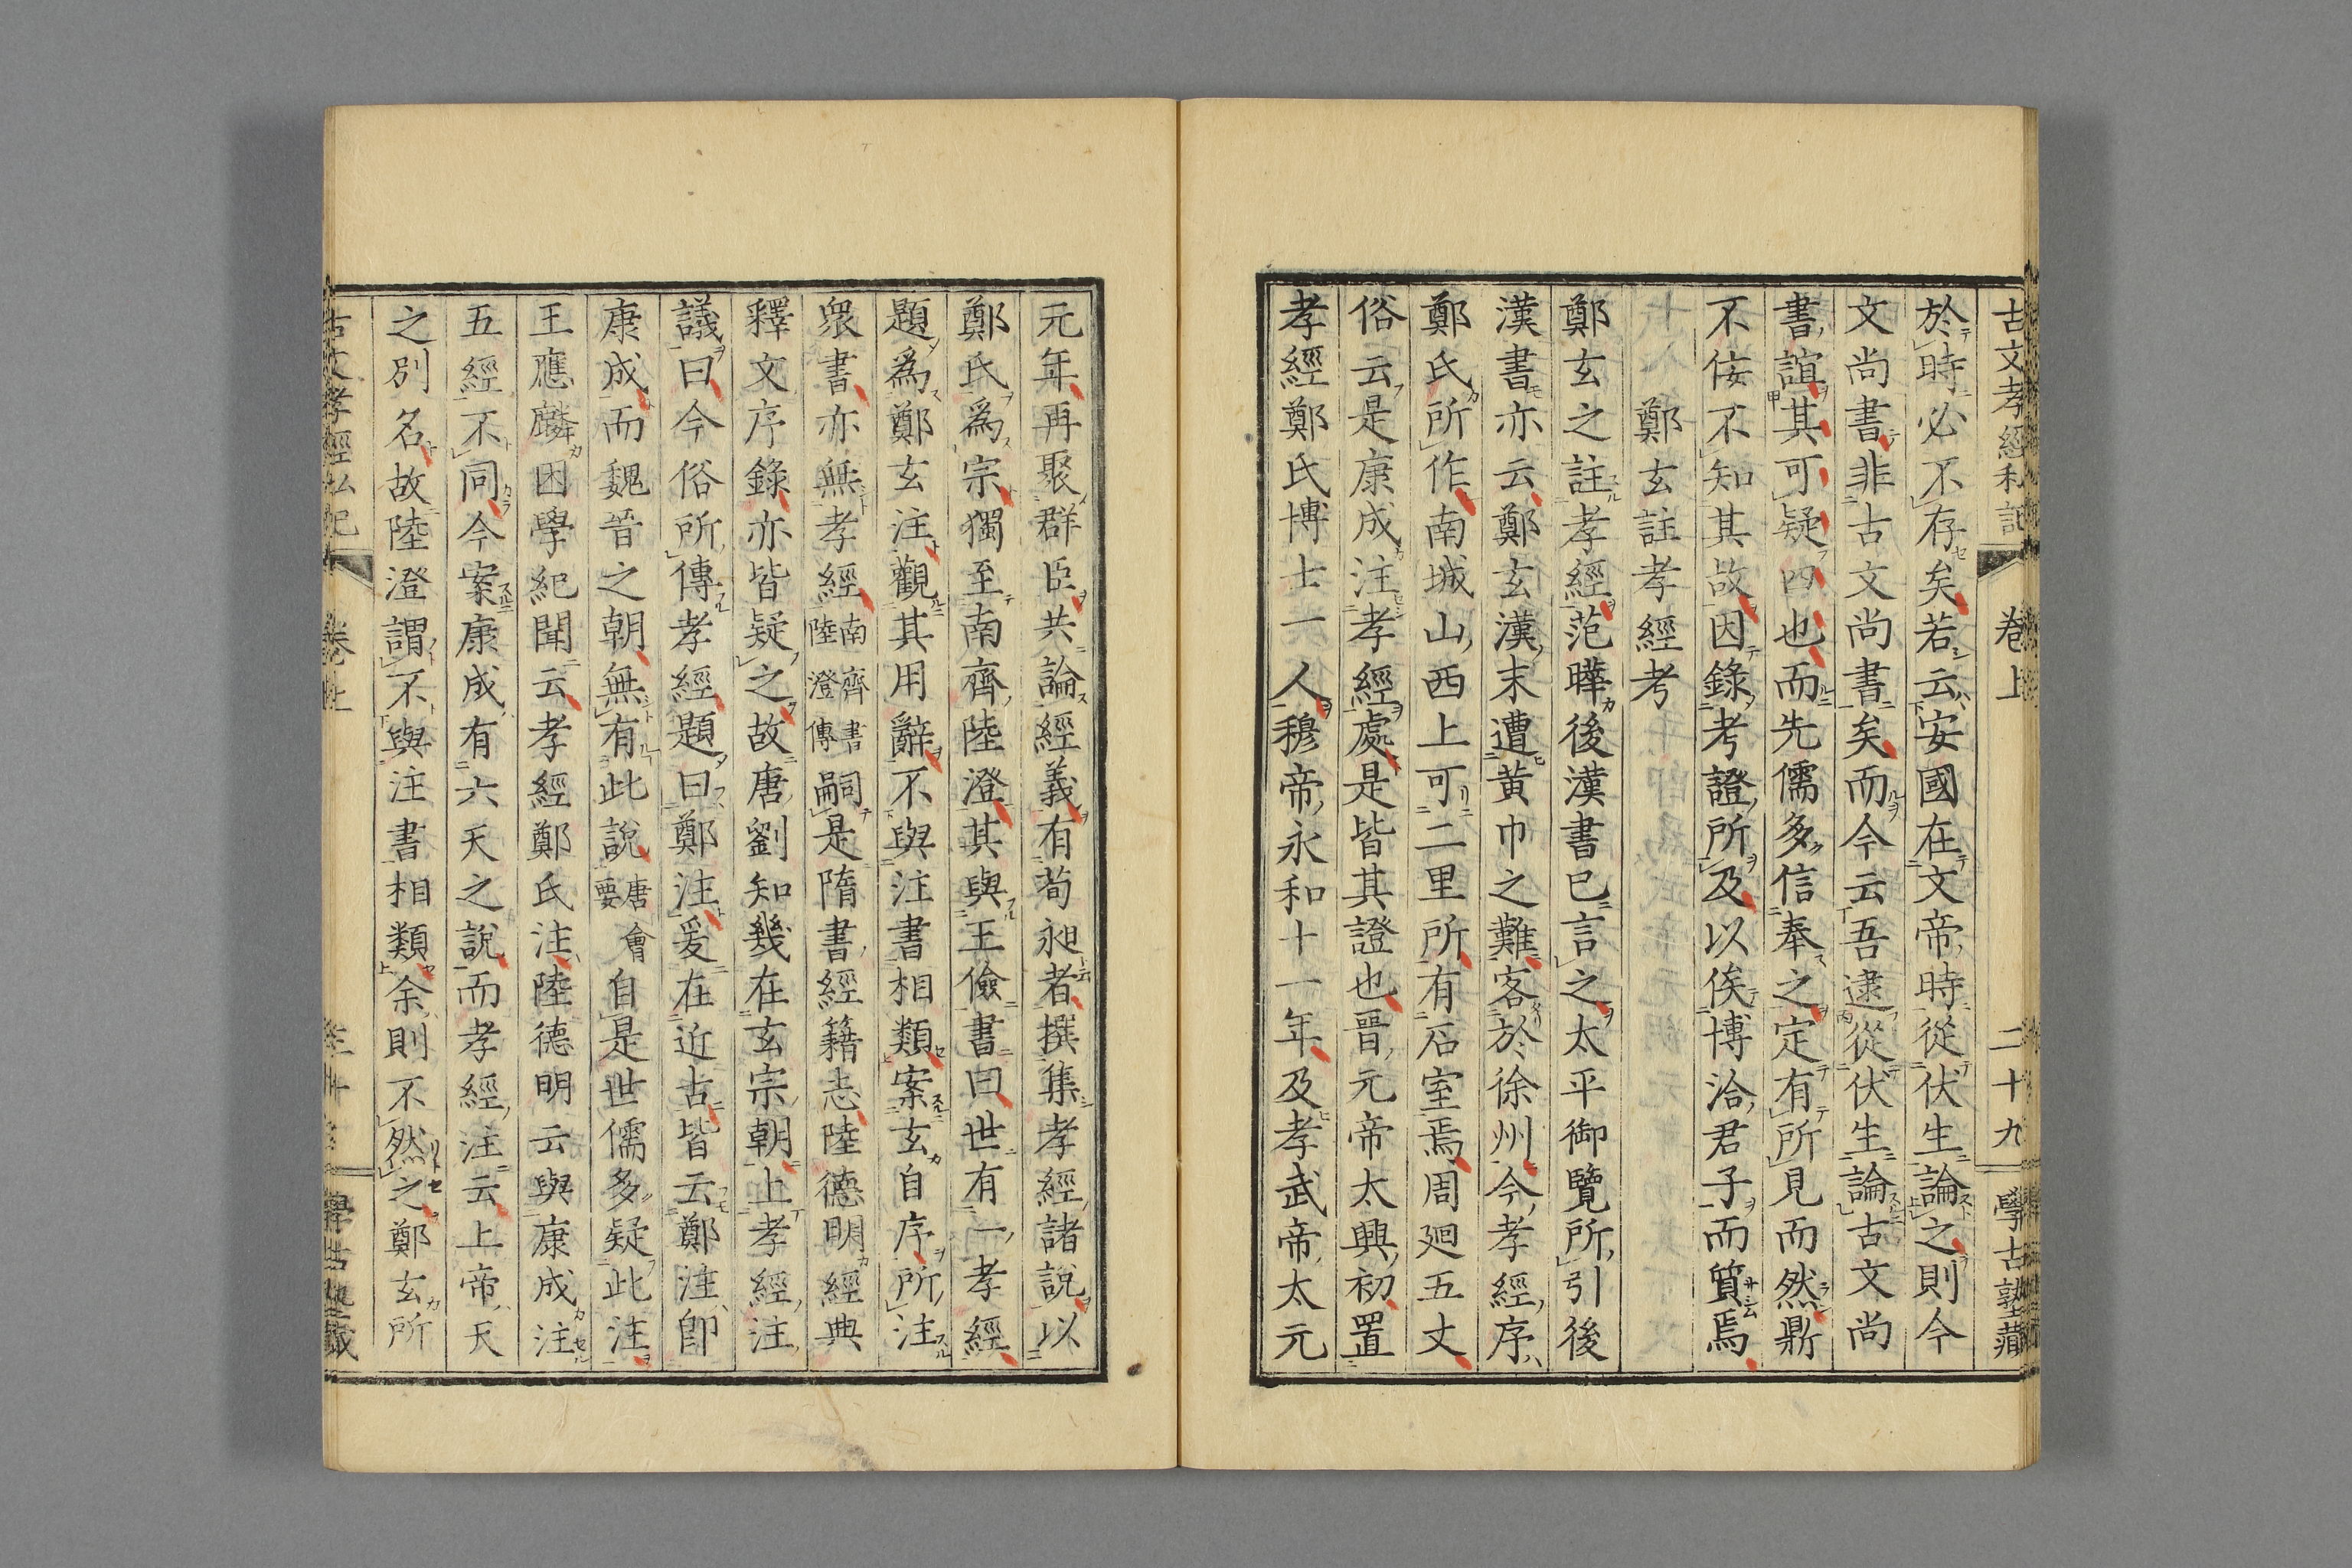 古文孝經私記
卷上
二十九
學古塾藏
於時必不存矣若云安國在文帝時從伏生論之則今
文尚書非古文尚書矣而今云吾逮從伏生論古文尚
書誼其可疑四也而先儒多信奉之定有所見而然鼎
不佞不知其故因錄考證所及以俟博洽君子而質焉
鄭玄註孝經考
鄭玄之註孝經范曄後漢書已言之太平御覽所引後
漢書亦云鄭玄漢末遭黃巾之難客於徐州今孝經序
鄭氏所作南城山西上可二里所有石室焉周廻五丈
俗云是康成注孝經處是皆其證也晉元帝太興初置
孝經鄭氏博士一人穆帝永和十一年及孝武帝太元
元年再聚群臣共論經義有荀昶者撰集孝經諸說以
鄭氏爲宗獨至南齊陸澄其與王儉書曰世有一孝經
題爲鄭玄注觀其用辭不與注書相類案玄自序所注
衆書亦無孝經南齊書陸澄傳嗣是隋書經籍志陸德明經典
釋文序錄亦皆疑之故唐劉知幾在玄宗朝上孝經注
議曰今俗所傳孝經題曰鄭注爰在近古皆云鄭注卽
康成而魏晉之朝無有此說唐會要自是世儒多疑此注
王應麟因學紀聞云孝經鄭氏注陸德明云與康成注
五經不同今案康成有六天之說而孝經注云上帝天
之別名故陸澄謂不與注書相類余則不然之鄭玄所